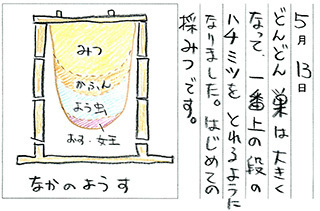 5月13日
どんどん巣は大きく
なって、一番上の段の
ハチミツをとれるように
なりました。はじめての
採みつです。
みつ
かふん
よう虫
おす・女王
なかのようす